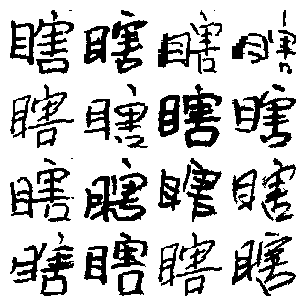 瞎瞎瞎瞎
瞎瞎瞎瞎
瞎瞎瞎瞎
瞎瞎瞎瞎